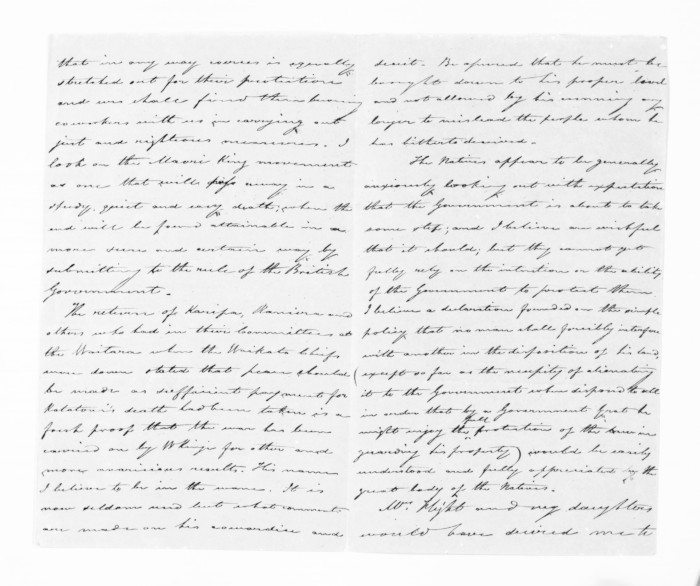 that in any way coerces is equally
stretched out for their protection
and we shall find them hearty
coworkers with us in carrying out
just and righteous measures. I
look on the Maori King movement
as one that will pass away in a
speedy, quiet and easy death; when the
end will be found attainable in a
more sure and certain way by
submitting to the rule of the British
Government.
The return of Karipa, and
others who had in their Committees at
the Waitara when the Waikato Chiefs
were down stated that peace should
be made as sufficient payment for
Katatori's death had been taken is a
fresh proof that the war has been
carried on by WKingi for other and
more avaricious results. His name
I believe to be in the wane. It is
now seldom used but what comments
are made on his cowardice and
deceit. Be assured that he must be
brought down to his proper level
and not allowed by his cunning any
longer to mislead the people whom he
has hitherto deceived.
The Natives appear to be generally
anxiously looking out with expectation
that the Government is about to take
some step, and I believe are wishful
that it should; but they cannot yet
fully rely on the intention or the ability
of the Government to protect them.
I believe a declaration founded on the simple
policy that no man shall forcibly interfere
with another in the disposition of his land
(except so far as the necessity of alienating
it to the Government when disposed to sell
in order that by a Government Grant he
might enjoy the full protection of the law in
guarding his property) would be easily
understood and fully appreciated by the
great body of the Natives.
Mrs. Flight and my daughters
would have desired me to